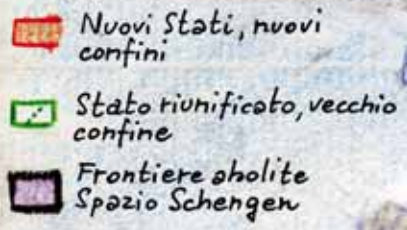 Nuovi Stati, nuovi
confini
Stato riunificato, vecchio
confine
Frontiere abolite
Spazio Schengen